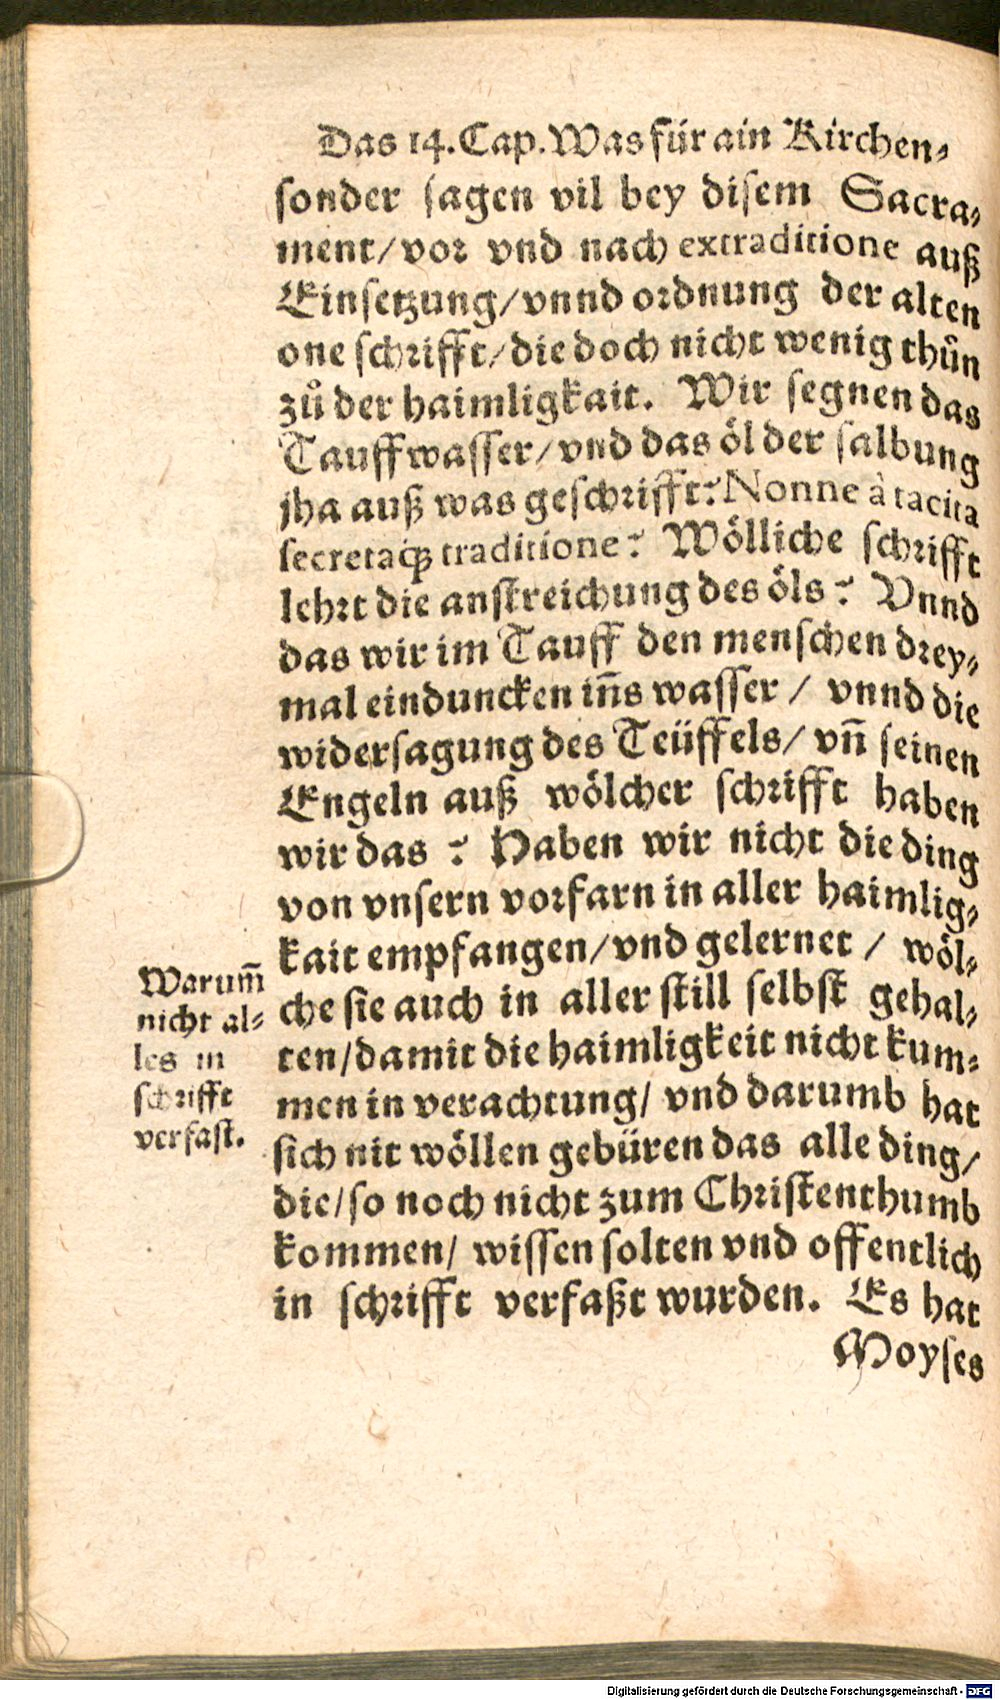 Das 14. Cap. Was für ain Kirchen⸗
sonder sagen vil bey disem Sacra⸗
ment/vor vnd nach extraditione auß
Einsetzung/vnnd ordnung der alten
one schrifft/die doch nicht wenig thůn
zů der haimligkait. Wir segnen das
Tauffwasser/vnd das öl der salbung
jha auß was geschrifft? Nonne à tacita
secretaq́ꝫ traditione? Wölliche schrifft
lehrt die anstreichung des öls? Vnnd
das wir im Tauff den menschen drey⸗
mal einduncken iñs wasser / vnnd die
widersagung des Teüffels/ vñ seinen
Engeln auß wölcher schrifft haben
wir das? Haben wir nicht die ding
von vnsern vorfarn in aller haimlig⸗
kait empfangen/vnd gelernet / wöl⸗
che sie auch in aller still selbst gehal⸗
ten/damit die haimligkeit nicht kum⸗
men in verachtung/ vnd darumb hat
sich nit wöllen gebüren das alle ding/
die/so noch nicht zum Christenthumb
kommen/ wissen solten vnd offentlich
in schrifft verfaßt wurden. Es hat
Moyses
Warum̃
nicht al⸗
les in
schrifft
verfast.
Digitalisierung gefördert durch die Deutsche Forschungsgemeinschaft - DFG